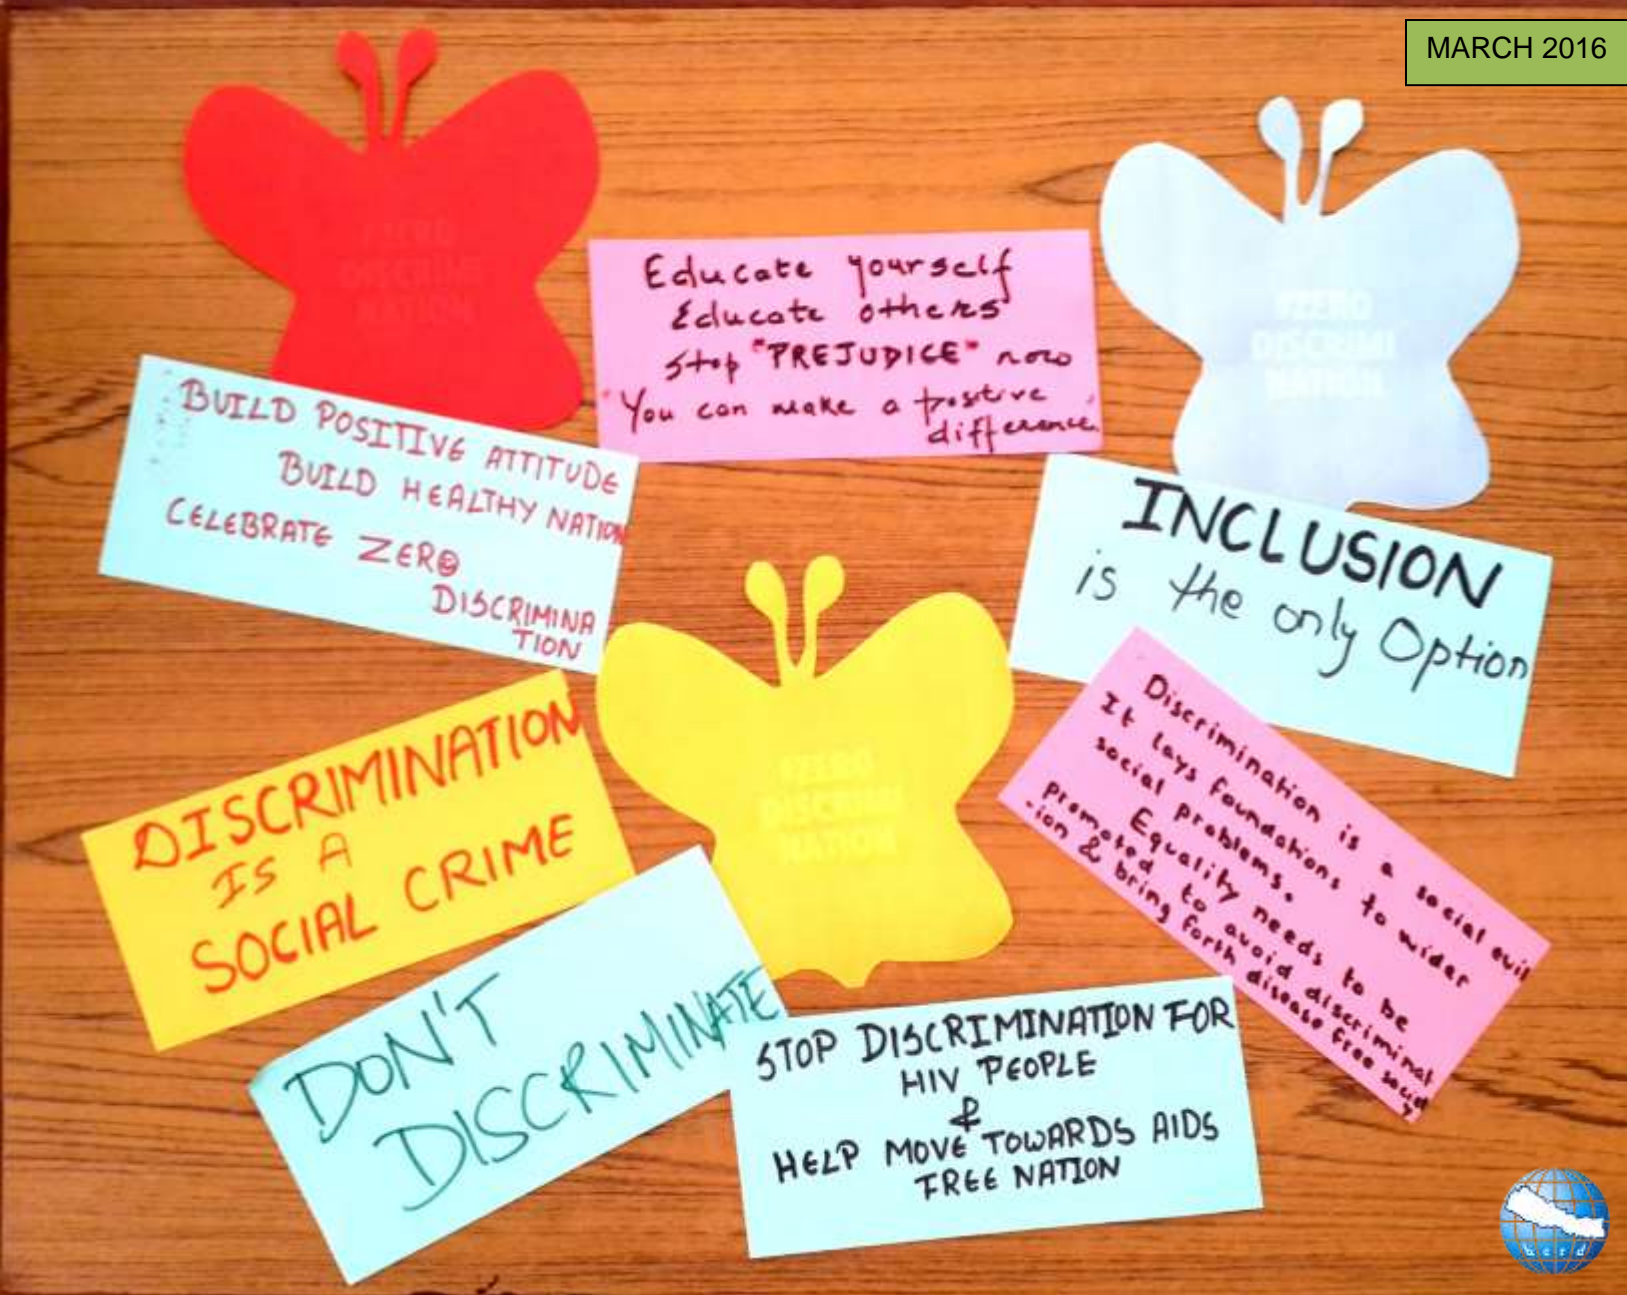 MARCH 2016
#ZERO
DISCRIMI
NATION
Educate yourself
Educate others
Stop "PREJUDICE" now
"You can make a positive
difference"
#ZERO
DISCRIMI
NATION
BUILD POSITIVE ATTITUDE
BUILD HEALTHY NATION
CELEBRATE ZERO
DISCRIMINA
TION
INCLUSION
is the only Option
#ZERO
DISCRIMI
NATION
Discrimination is a social evil
It lays foundations to wider
social problems.
Equality needs to be
promoted to avoid discriminat
-ion & bring forth disease free society
DISCRIMINATION
IS A
SOCIAL CRIME
DON'T
DISCRIMINATE
STOP DISCRIMINATION FOR
HIV PEOPLE
&
HELP MOVE TOWARDS AIDS
FREE NATION